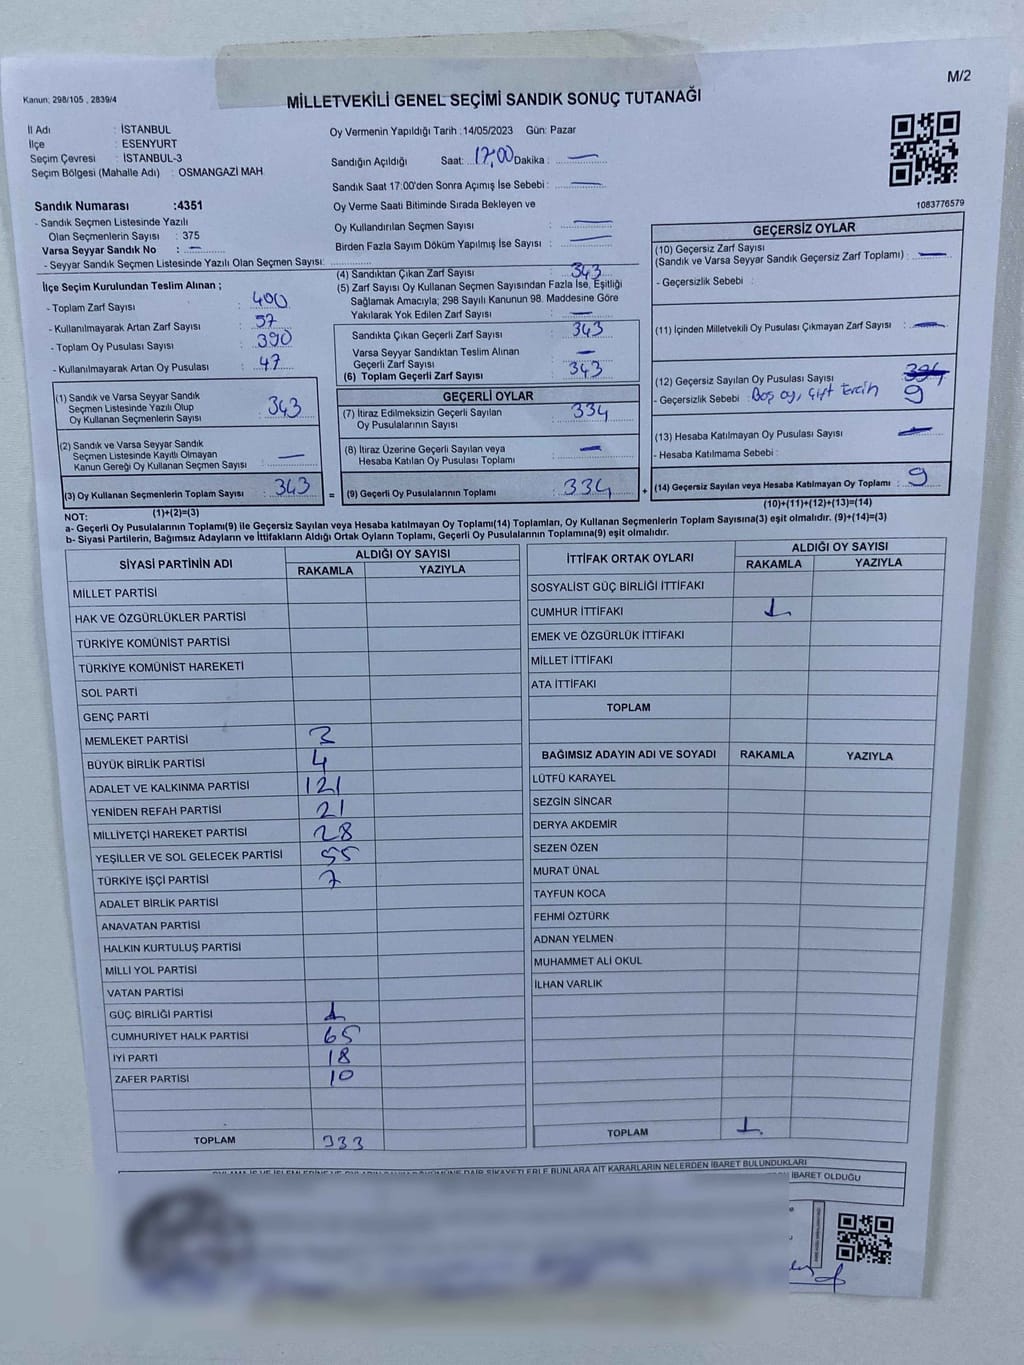 M/2
Kanun: 298/105 , 2839/4
MİLLETVEKİLİ GENEL SEÇİMİ SANDIK SONUÇ TUTANAĞI
İl Adı : İSTANBUL
İlçe : ESENYURT
Seçim Çevresi : İSTANBUL-3
Seçim Bölgesi (Mahalle Adı) : OSMANGAZİ MAH
Sandık Numarası :4351
- Sandık Seçmen Listesinde Yazılı
Olan Seçmenlerin Sayısı : 375
Varsa Seyyar Sandık No : —
- Seyyar Sandık Seçmen Listesinde Yazılı Olan Seçmen Sayısı:
Oy Vermenin Yapıldığı Tarih :14/05/2023 Gün: Pazar
Sandığın Açıldığı Saat: 17,00 Dakika : —
Sandık Saat 17:00'den Sonra Açımış İse Sebebi : —
Oy Verme Saati Bitiminde Sırada Bekleyen ve
Oy Kullandırılan Seçmen Sayısı : —
Birden Fazla Sayım Döküm Yapılmış İse Sayısı : —
1083776579
İlçe Seçim Kurulundan Teslim Alınan ;
- Toplam Zarf Sayısı : 400
- Kullanılmayarak Artan Zarf Sayısı : 57
- Toplam Oy Pusulası Sayısı : 390
- Kullanılmayarak Artan Oy Pusulası : 47
(1) Sandık ve Varsa Seyyar Sandık
Seçmen Listesinde Yazılı Olup
Oy Kullanan Seçmenlerin Sayısı : 343
(2) Sandık ve Varsa Seyyar Sandık
Seçmen Listesinde Kayıtlı Olmayan
Kanun Gereği Oy Kullanan Seçmen Sayısı : —
(3) Oy Kullanan Seçmenlerin Toplam Sayısı : 343
(1)+(2)=(3)
(4) Sandıktan Çıkan Zarf Sayısı : 343
(5) Zarf Sayısı Oy Kullanan Seçmen Sayısından Fazla İse, Eşitliği
Sağlamak Amacıyla; 298 Sayılı Kanunun 98. Maddesine Göre
Yakılarak Yok Edilen Zarf Sayısı : —
Sandıkta Çıkan Geçerli Zarf Sayısı : 343
Varsa Seyyar Sandıktan Teslim Alınan
Geçerli Zarf Sayısı : —
(6) Toplam Geçerli Zarf Sayısı : 343
GEÇERLİ OYLAR
(7) İtiraz Edilmeksizin Geçerli Sayılan
Oy Pusulalarının Sayısı : 334
(8) İtiraz Üzerine Geçerli Sayılan veya
Hesaba Katılan Oy Pusulası Toplamı : —
= (9) Geçerli Oy Pusulalarının Toplamı : 334 +
GEÇERSİZ OYLAR
(10) Geçersiz Zarf Sayısı
(Sandık ve Varsa Seyyar Sandık Geçersiz Zarf Toplamı) : —
- Geçersizlik Sebebi :
(11) İçinden Milletvekili Oy Pusulası Çıkmayan Zarf Sayısı : —
(12) Geçersiz Sayılan Oy Pusulası Sayısı : 9
- Geçersizlik Sebebi : Boş oy, çift tercih
(13) Hesaba Katılmayan Oy Pusulası Sayısı : —
- Hesaba Katılmama Sebebi :
(14) Geçersiz Sayılan veya Hesaba Katılmayan Oy Toplamı : 9
(10)+(11)+(12)+(13)=(14)
NOT:
a- Geçerli Oy Pusulalarının Toplamı(9) ile Geçersiz Sayılan veya Hesaba katılmayan Oy Toplamı(14) Toplamları, Oy Kullanan Seçmenlerin Toplam Sayısına(3) eşit olmalıdır. (9)+(14)=(3)
b- Siyasi Partilerin, Bağımsız Adayların ve İttifakların Aldığı Ortak Oyların Toplamı, Geçerli Oy Pusulalarının Toplamına(9) eşit olmalıdır.
SİYASİ PARTİNİN ADI ALDIĞI OY SAYISI
RAKAMLA YAZIYLA
MİLLET PARTİSİ
HAK VE ÖZGÜRLÜKLER PARTİSİ
TÜRKİYE KOMÜNİST PARTİSİ
TÜRKİYE KOMÜNİST HAREKETİ
SOL PARTİ
GENÇ PARTİ
MEMLEKET PARTİSİ 3
BÜYÜK BİRLİK PARTİSİ 4
ADALET VE KALKINMA PARTİSİ 121
YENİDEN REFAH PARTİSİ 21
MİLLİYETÇİ HAREKET PARTİSİ 28
YEŞİLLER VE SOL GELECEK PARTİSİ 55
TÜRKİYE İŞÇİ PARTİSİ 7
ADALET BİRLİK PARTİSİ
ANAVATAN PARTİSİ
HALKIN KURTULUŞ PARTİSİ
MİLLİ YOL PARTİSİ
VATAN PARTİSİ
GÜÇ BİRLİĞİ PARTİSİ 1
CUMHURİYET HALK PARTİSİ 65
İYİ PARTİ 18
ZAFER PARTİSİ 10
TOPLAM 333
İTTİFAK ORTAK OYLARI ALDIĞI OY SAYISI
RAKAMLA YAZIYLA
SOSYALİST GÜÇ BİRLİĞİ İTTİFAKI
CUMHUR İTTİFAKI 1
EMEK VE ÖZGÜRLÜK İTTİFAKI
MİLLET İTTİFAKI
ATA İTTİFAKI
TOPLAM
BAĞIMSIZ ADAYIN ADI VE SOYADI RAKAMLA YAZIYLA
LÜTFÜ KARAYEL
SEZGİN SİNCAR
DERYA AKDEMİR
SEZEN ÖZEN
MURAT ÜNAL
TAYFUN KOCA
FEHMİ ÖZTÜRK
ADNAN YELMEN
MUHAMMET ALİ OKUL
İLHAN VARLIK
TOPLAM 1
DAİR ŞİKAYETLERLE BUNLARA AİT KARARLARIN NELERDEN İBARET BULUNDUKLARI
İBARET OLDUĞU